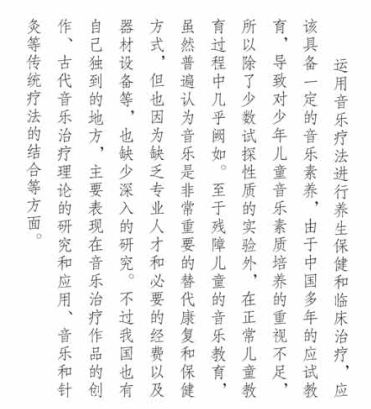 运用音乐疗法进行养生保健和临床治疗，应
该具备一定的音乐素养，由于中国多年的应试教
育，导致对少年儿童音乐素质培养的重视不足，
所以除了少数试探性质的实验外，在正常儿童教
育过程中几乎阙如。至于残障儿童的音乐教育，
虽然普遍认为音乐是非常重要的替代康复和保健
方式，但也因为缺乏专业人才和必要的经费以及
器材设备等，也缺少深入的研究。不过我国也有
自己独到的地方，主要表现在音乐治疗作品的创
作、古代音乐治疗理论的研究和应用、音乐和针
灸等传统疗法的结合等方面。